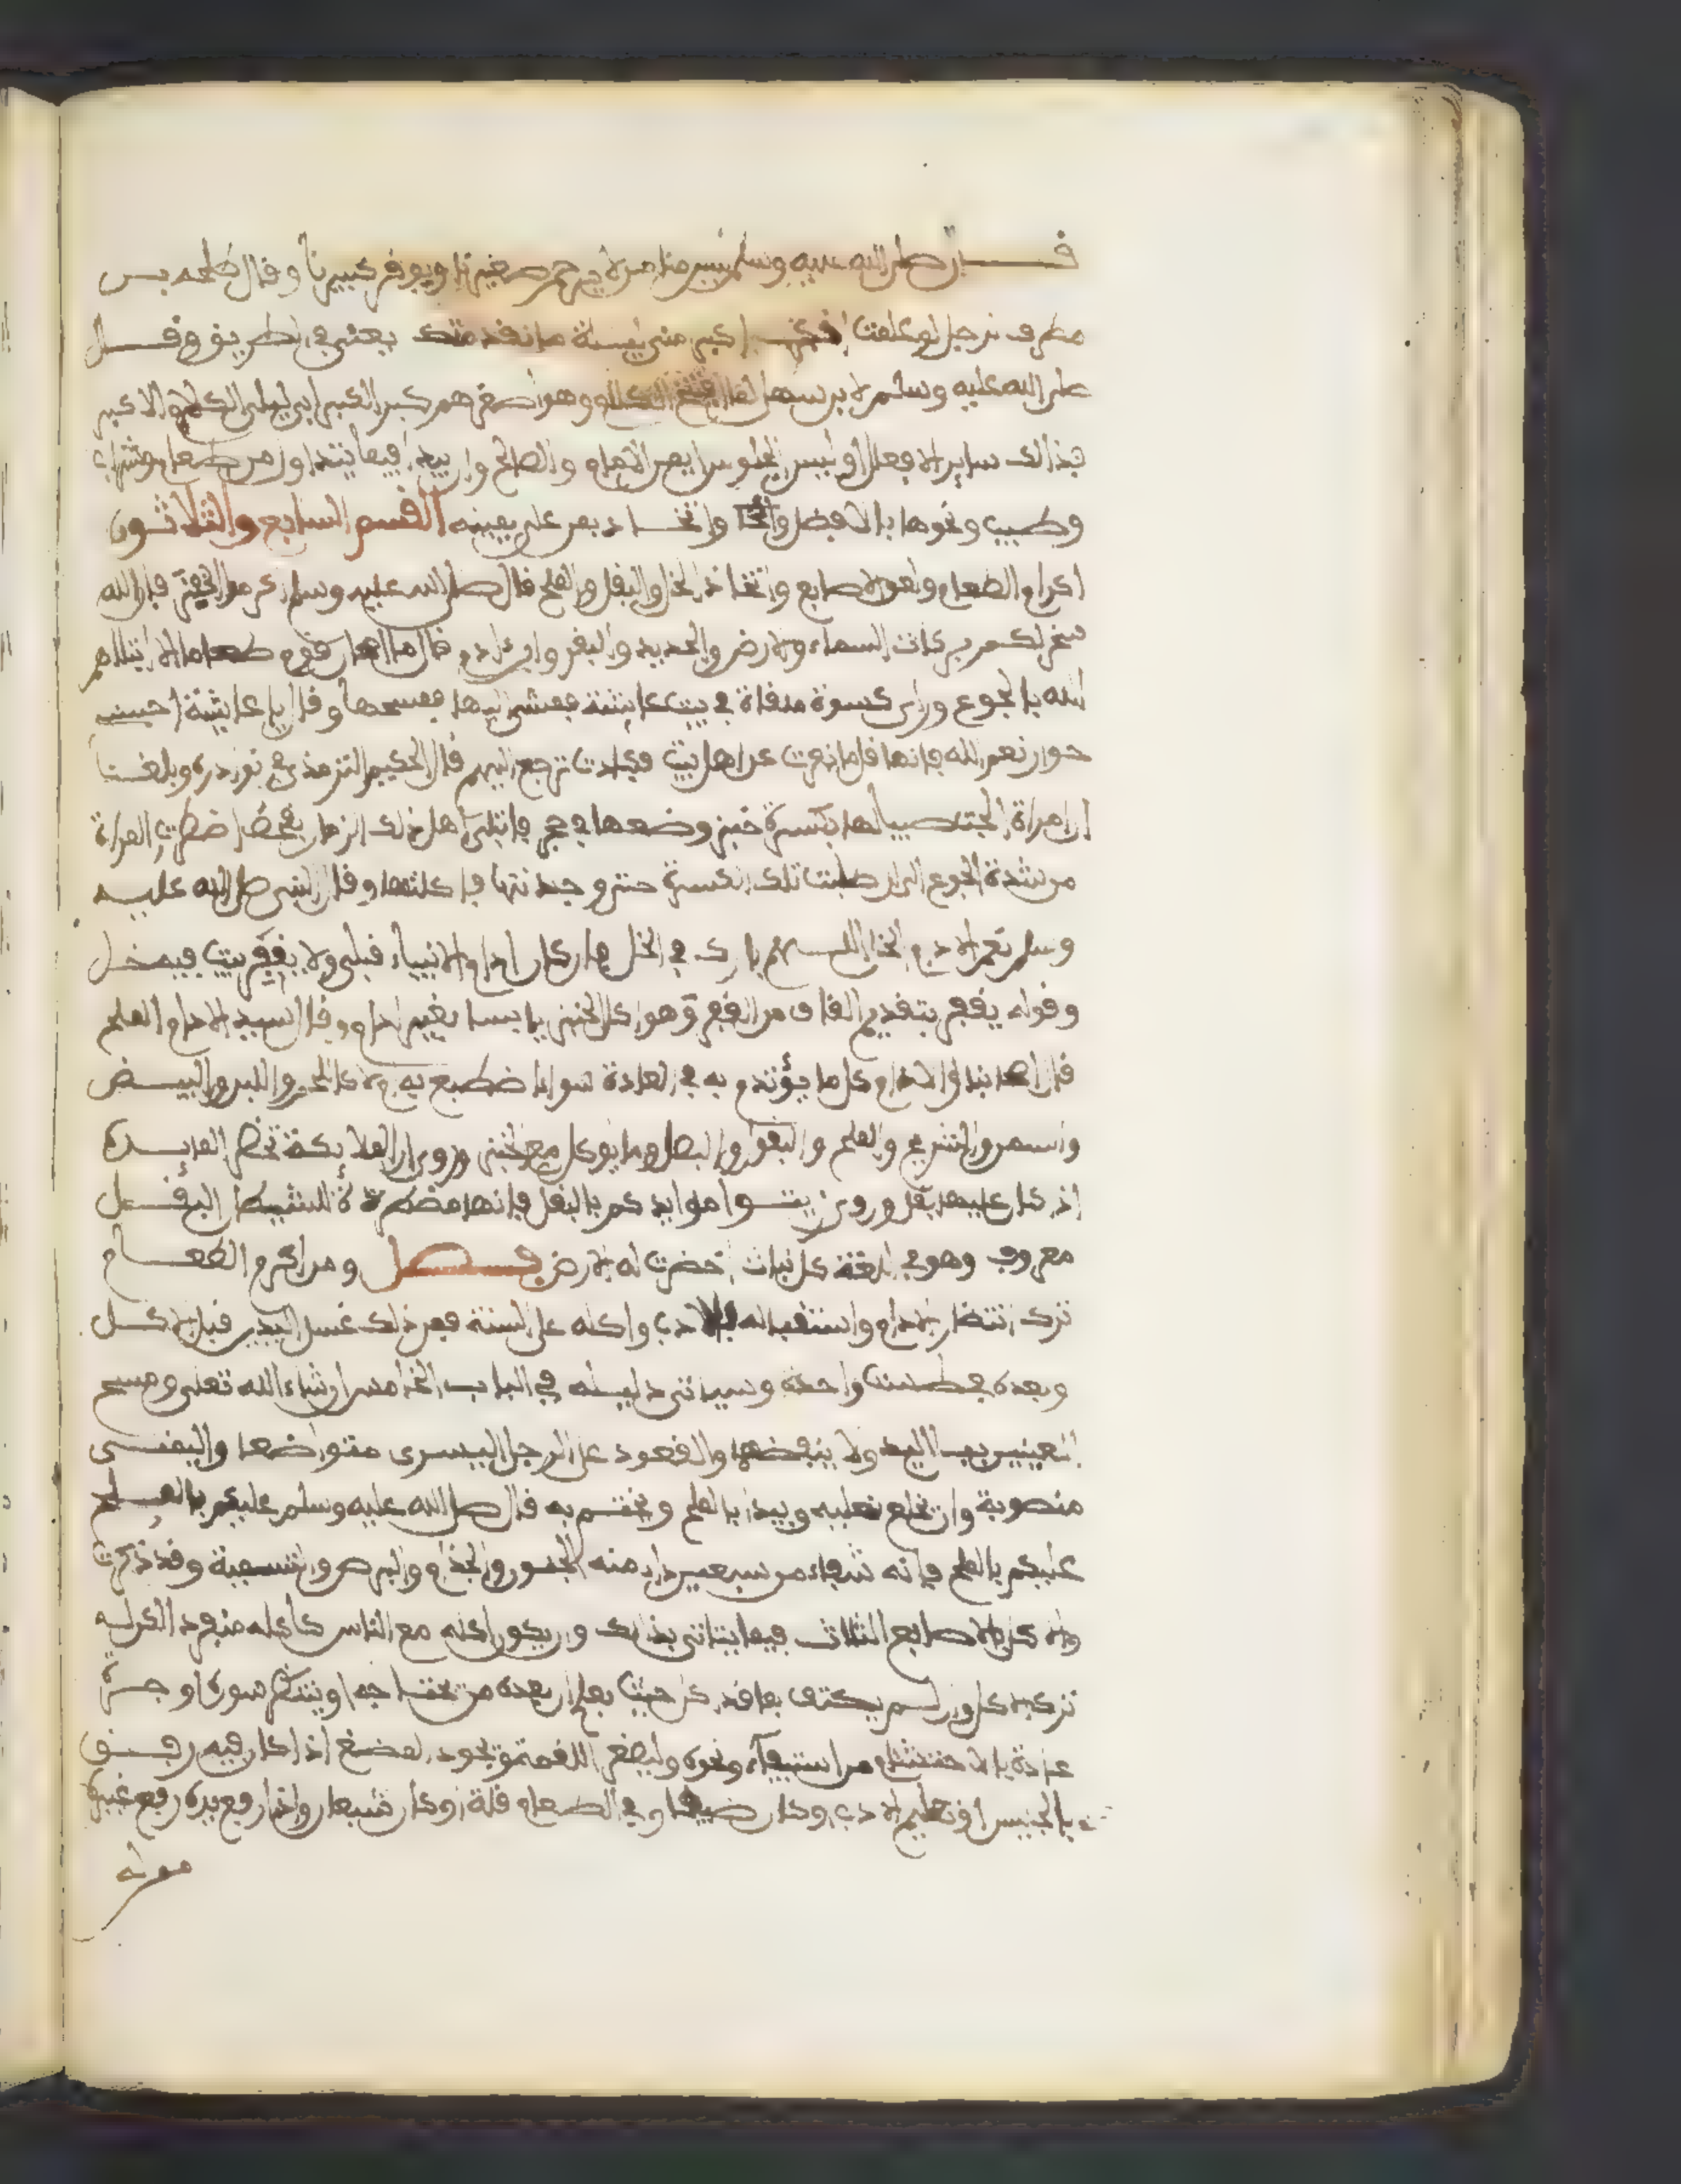 قال صلى الله عليه وسلم ليس منا من لا يرحم صغيرنا ويوقر كبيرنا وقال طلحة بن
مطرف لرجل لو علمت أنك أكبر مني بليلة ما تقدمتك يعني في الطريق وقال
صلى الله عليه وسلم لابن سهل لما افتتح الكلام وهو أصغرهم كبر الكبر أي ليلي الكلام الأكبر
فذلك ساير الأفعال أو ليس الجلوس أيمن الإمام والصالح وابيه فيما يتداول من طعام وشراب
وطيب ونحوها بالأفضل وإن اتحد فمن على يمينه القسم السابع والثلاثون
إكرام الطعام ولعق الأصابع واتخاذ الخل والبقل والملح قال صلى الله عليه وسلم أكرموا الخبز فإن الله
سخر لكم بركات السماء والأرض والحديد والبقر وابن ءادم قال ما أهان قوم طعاما إلا ابتلاهم
الله بالجوع ورأى كسرة ملقاة في بيت عائشة فمشى إليها فمسحها وقال يا عائشة أحسني
جوار نعم الله فإنها قل ما نفرت عن أهل بيت فكادت ترجع إليهم قال الحكيم الترمذي في نوادره وبلغنا
أن امرأة أنجت صبيا لها بكسرة خبز وضعها في جحر فابتلي أهل ذلك الزمان بقحط اضطرت المرأة
من شدة الجوع إلى أن طلبت تلك الكسرة حتى وجدتها فأكلتها وقال النبي صلى الله عليه
وسلم نعم الإدام الخل اللهم بارك في الخل فإنه كان إدام الأنبياء قبلي ولا يقفر بيت فيه خل
وقوله يقفر بتقديم القاف من القفر وهو أكل الخبز يابسا بغير إدام وقال السيد الإدام الملح
قال أصحابنا والإدام كل ما يؤتدم به في العادة سوى ما اضطبع به أو لا كاللحم واللبن والبيض
والسمن والشرج والملح والبقول والبصل وما يوكل مع الخبز وروي أن الملائكة تحضر المايدة
إذا كان عليها بقل وروي زينوا موايدكم بالبقل فإنها مطردة للشيطان البقل
معروف وهو في اللغة كل نبات اخضرت له الأرض فصل ومن إكرام الطعام
ترك انتظار الإدام واستقباله بالأدب وأكله على السنة فمن ذلك غسل اليدين قبل الأكل
وبعده في طست واحدة وسياتي دليله في الباب الخامس إن شاء الله تعلى ومسح
العينين ببلل اليد ولا ينفضها والقعود على الرجل اليسرى متواضعا واليمنى
منصوبة وأن يخلع نعليه ويبدأ بالملح ويختم به قال صلى الله عليه وسلم عليكم بالملح
عليكم بالملح فإنه شفاء من سبعين داء منه الجنون والجذام والبرص والتسمية وقد ذكرت
والأكل بالأصابع الثلاث فيما يتاتى بذلك وأن يكون أكله مع الناس كأكله منفردا لكن له
ترك الأكل وإن لم يكتف بما قد أكل حيث يعلم أن بعده من يحتاجه أو ينتظر سوره أو جرت
عادة بالاحتشام من استيفاء ونحوه وليصغر اللقمة ويجود المضغ إذا كان فيه رفق
بالجليس أو تعليم الأدب وكان ضيفا وفي الطعام قلة أو كان شبعان وإذا رفع يده رفع غيره